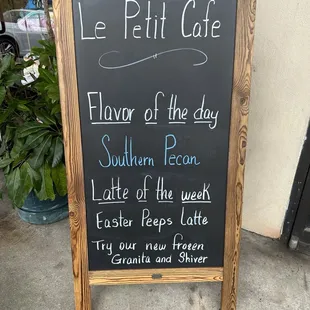 Le Petit Cafe
Flavor of the day
Southern Pecan
Latte of the week
Easter Peeps Latte
Try our new frozen
Granita and Shiver